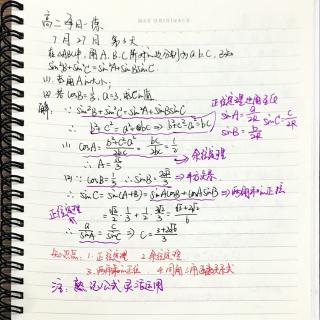 高二每日一练
7月27日 第3天
在△ABC中,角A、B、C所对的边分别为a、b、c,已知
sin²B+sin²C=sin²A+sinBsinC.
(1) 求角A的大小;
(2) 若cosB=1/3, a=3, 求c的值.
解: ∵ sin²B+sin²C=sin²A+sinBsinC
∴ b²+c²=a²+bc ⇒ b²+c²-a²=bc
正弦定理边角互化
sinA=a/2R sinC=c/2R
sinB=b/2R
(1) cosA=(b²+c²-a²)/2bc=bc/2bc=1/2
→余弦定理
∴ A=π/3
(2) ∵ cosB=1/3 ∴ sinB=2√2/3 →平方关系
∴ sinC=sin(A+B)=sinAcosB+cosAsinB →两角和的正弦
=√3/2·1/3+1/2·2√2/3=(√3+2√2)/6
正弦定理
∴ a/sinA=c/sinC ⇒ c=(3+2√6)/3
知识点: 1.正弦定理 2.余弦定理
3.两角和的正弦 4.同角三角函数关系式
注: 熟记公式 灵活运用